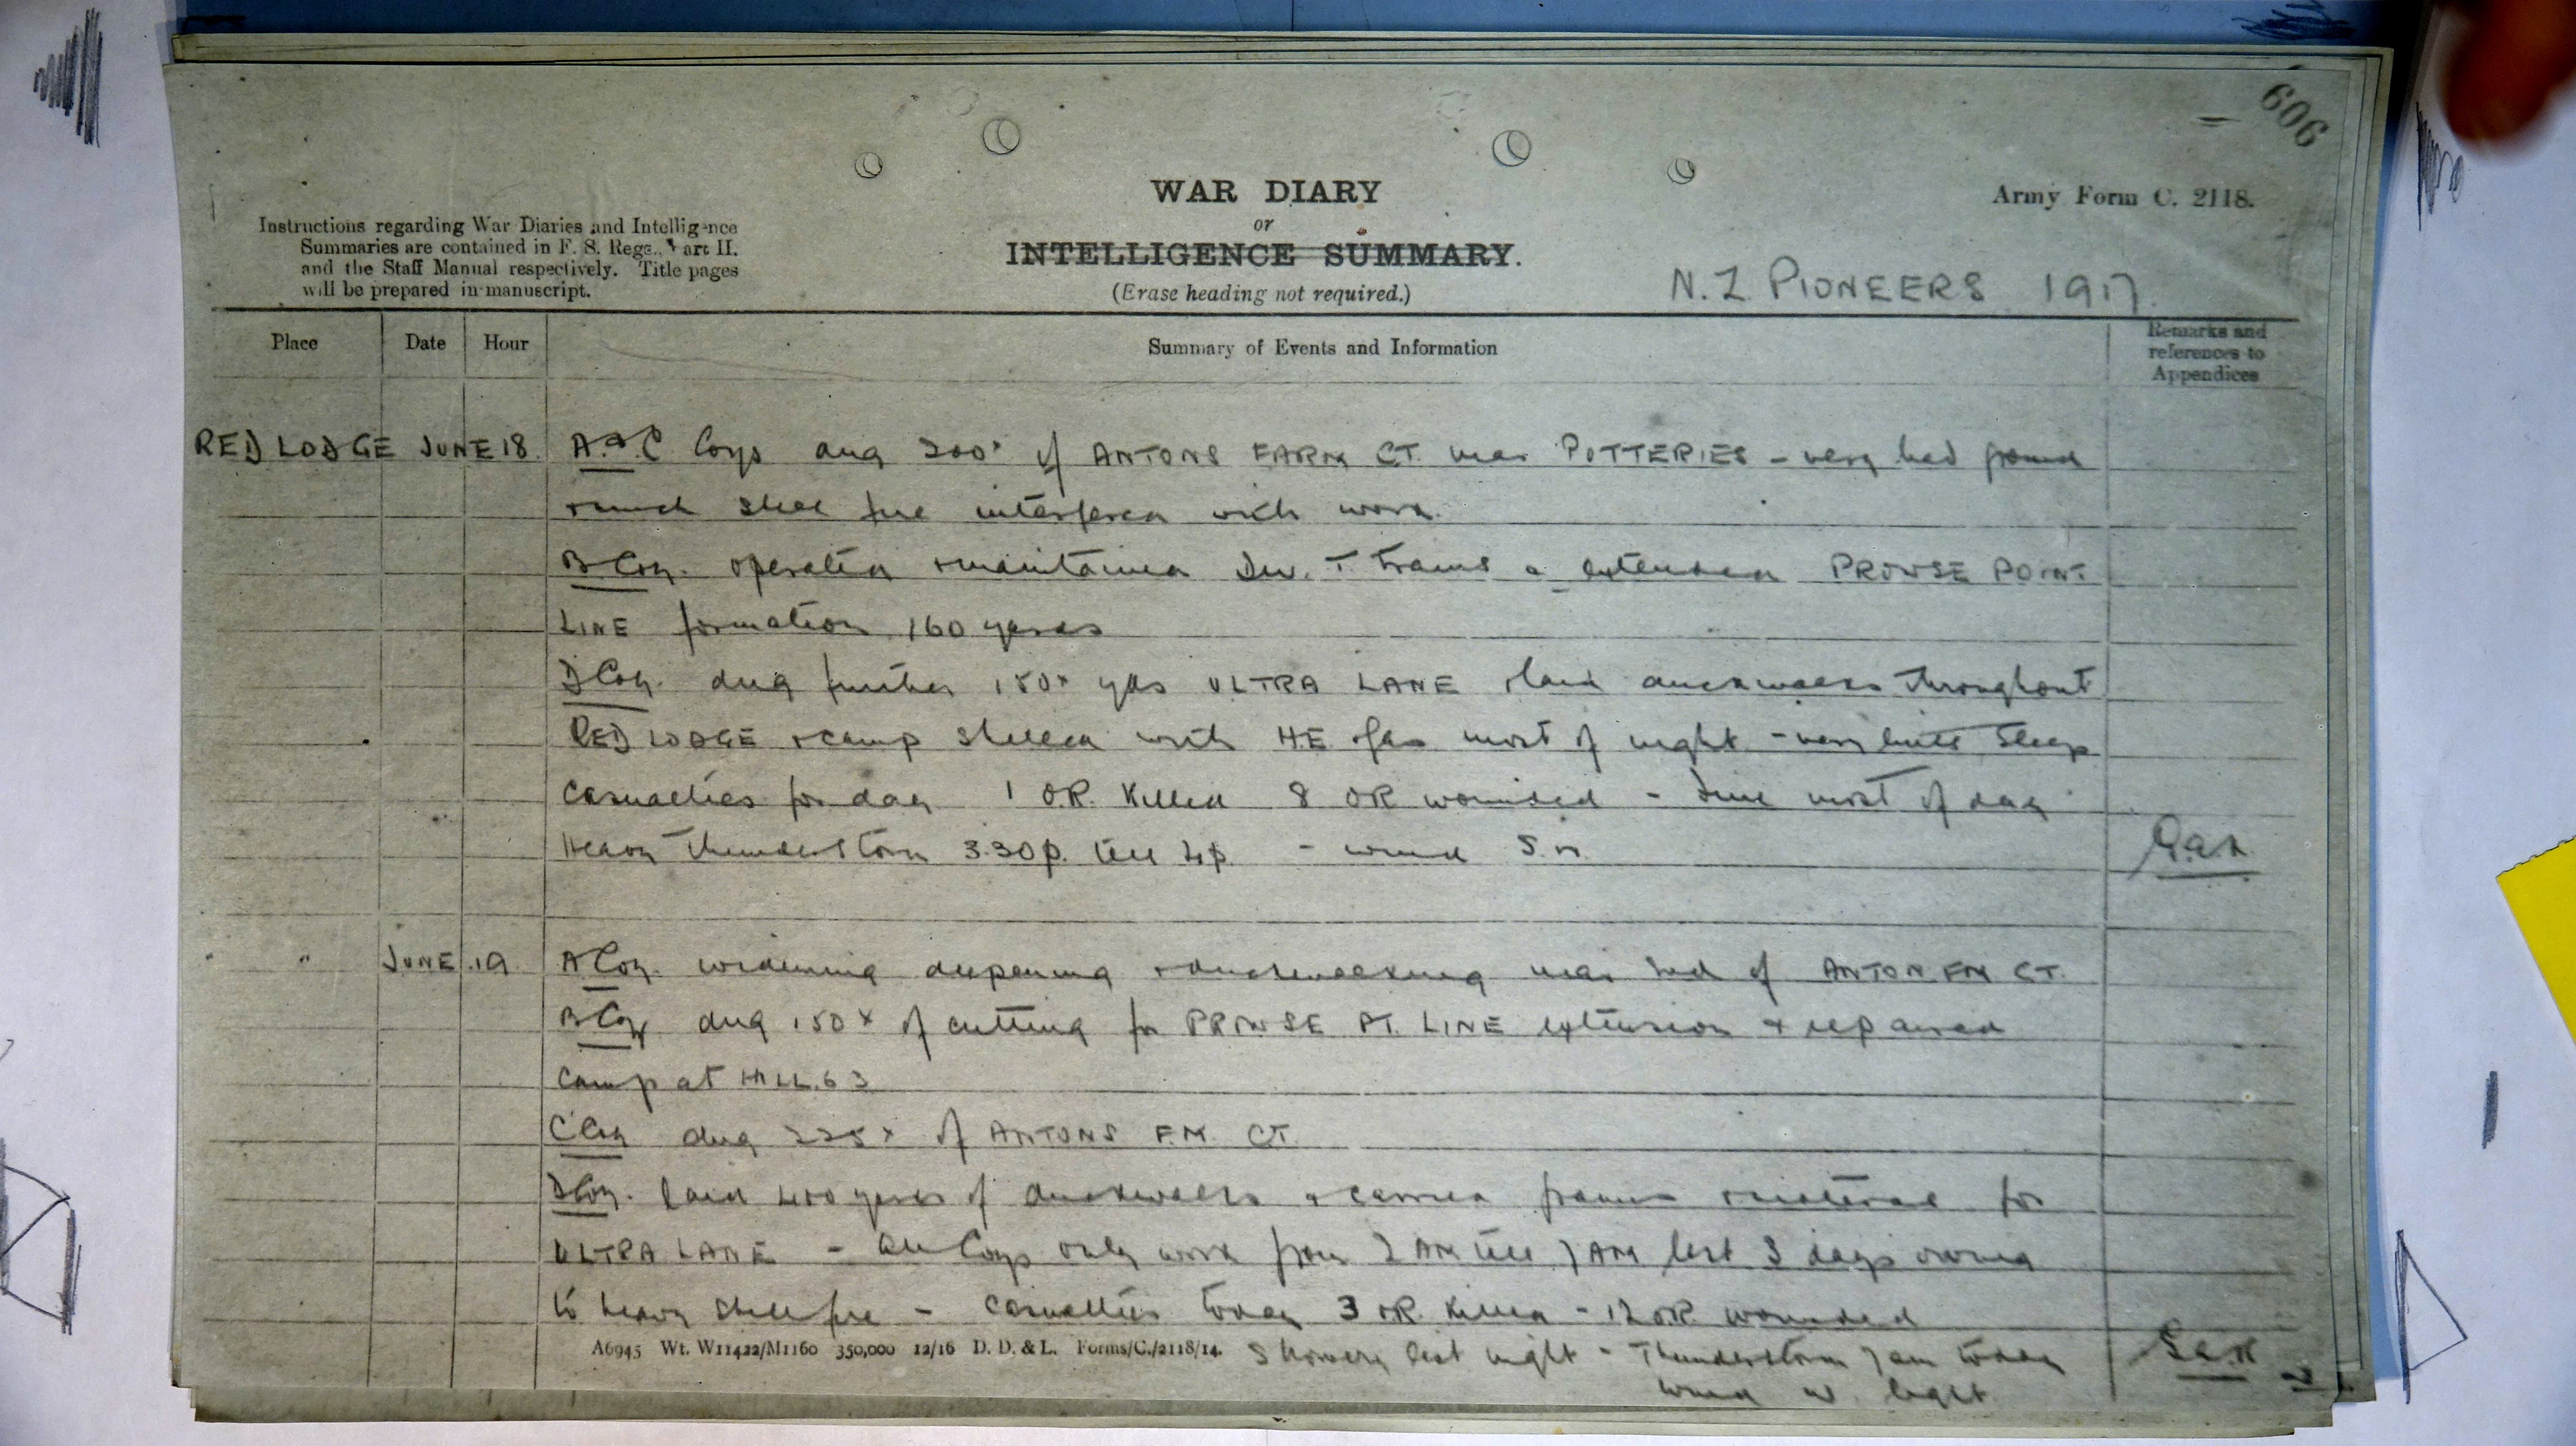 606
WAR DIARY
or
INTELLIGENCE SUMMARY.
(Erase heading not required.)
Army Form C. 2118.
Instructions regarding War Diaries and Intelligence
Summaries are contained in F. S. Regs., Part II.
and the Staff Manual respectively. Title pages
will be prepared in manuscript.
N.Z PIONEERS 1917.
Place Date Hour Summary of Events and Information Remarks and
references to
Appendices
RED LODGE JUNE 18 A & C Coys dug 200x of ANTONS FARM CT. near POTTERIES - very bad ground
& much shell fire interfered with work.
B Coy. operated & maintained Div. T Trams & extended PROWSE POINT
LINE formation 160 yards
D Coy. dug further 150x yds ULTRA LANE & laid duckwalks throughout
RED LODGE & camp shelled with H.E & gas most of night - very little sleep
Casualties for day 1 O.R. Killed 8 OR wounded - fine most of day
Heavy thunderstorm 3.30p. till 4p. - wind S.W.
" " JUNE 19 A Coy. widening deepening & duckwalking near end of ANTON FM CT.
B Coy dug 150x of cutting for PROWSE PT. LINE extension & repaired
camp at HILL 63
C Coy dug 225x of ANTONS FM. CT.
D Coy. laid 400 yards of duckwalks & carried frames & material for
ULTRA LANE - All Coys only work from 2 AM till 7 AM last 3 days owing
to heavy shell fire - Casualties today 3 OR. Killed - 12 OR. wounded
A6945 Wt. W11422/M1160 350,000 12/16 D. D. & L. Forms/C./2118/14. Showery last night - Thunderstorm 7 am today
wind W. light.